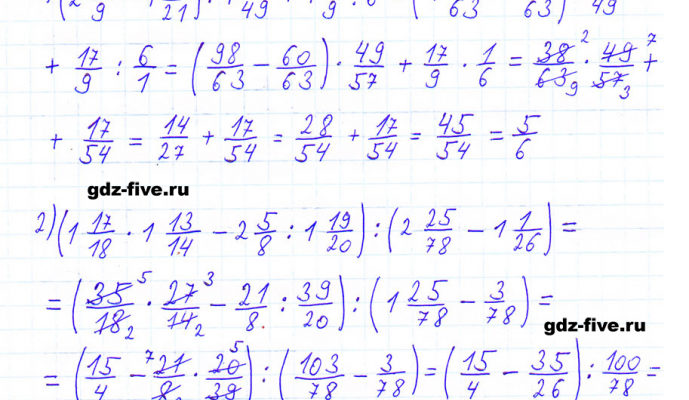 9 21) 49 9 63 63) 49
+ 17/9 : 6/1 = (98/63 − 60/63) · 49/57 + 17/9 · 1/6 = 38²/63₉ · 49⁷/57₃ +
+ 17/54 = 14/27 + 17/54 = 28/54 + 17/54 = 45/54 = 5/6
gdz-five.ru
2) (1 17/18 · 1 13/14 − 2 5/8 : 1 19/20) : (2 25/78 − 1 1/26) =
= (35⁵/18₂ · 27³/14₂ − 21/8 : 39/20) : (1 25/78 − 3/78) =
gdz-five.ru
= (15/4 − ⁷21/8 · 20⁵/39) : (103/78 − 3/78) = (15/4 − 35/26) : 100/78 =